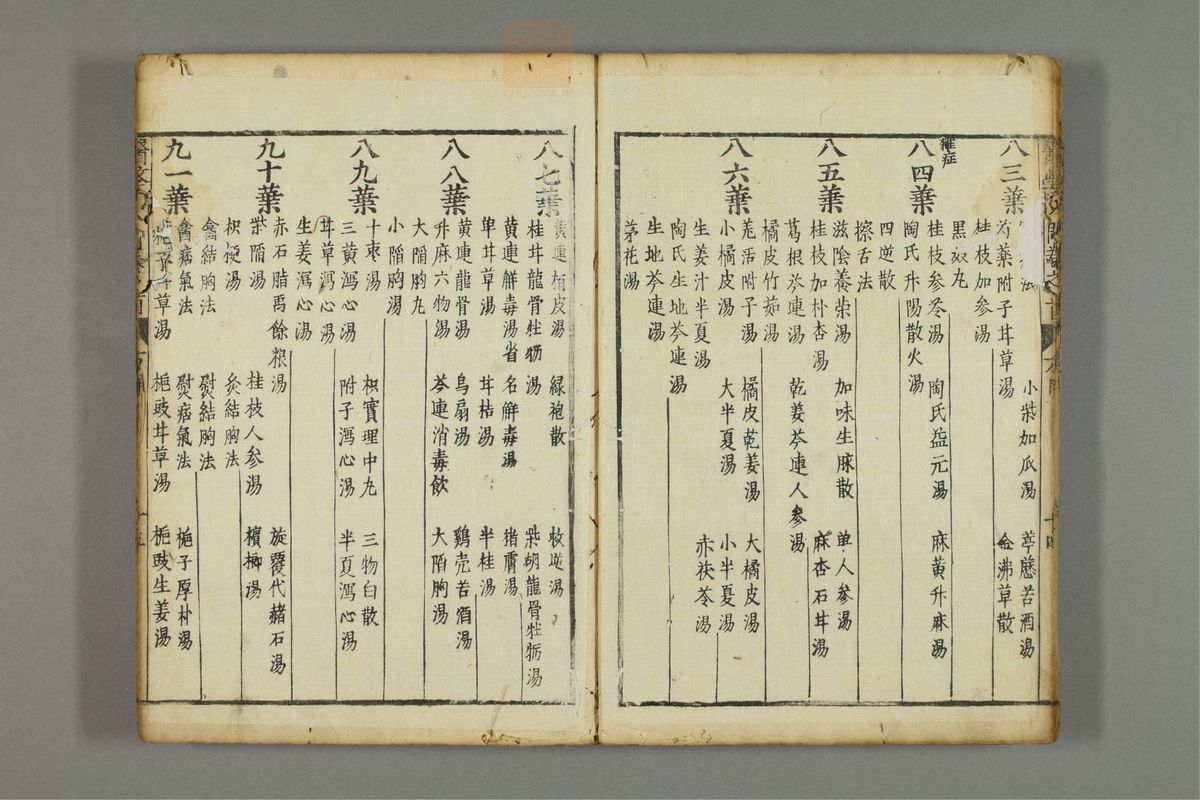 八三葉
小柴加瓜湯
葶藶苦酒湯
芍藥附子甘草湯
金沸草散
桂枝加参湯
黒奴丸
雜症
八四葉
桂枝参苓湯
陶氏益元湯
麻黄升麻湯
陶氏升陽散火湯
四逆散
擦舌法
八五葉
滋陰養榮湯
加味生脉散
单人参湯
桂枝加朴杏湯
麻杏石甘湯
葛根芩連湯
乾姜芩連人参湯
橘皮竹茹湯
八六葉
羗活附子湯
橘皮乾姜湯
大橘皮湯
小橘皮湯
大半夏湯
小半夏湯
生姜汁半夏湯
赤茯苓湯
陶氏生地芩連湯
生地芩連湯
茅花湯
八七葉
黄連桕皮湯
緑袍散
救逆湯
桂甘龍骨牡蛎湯
柴胡龍骨牡蛎湯
黄連解毒湯省名解毒湯
猪膚湯
单甘草湯
甘桔湯
半桂湯
八八葉
黄連龍骨湯
烏扇湯
鷄壳苦酒湯
升麻六物湯
芩連消毒飲
大陷胸湯
大陷胸丸
小陷胸湯
八九葉
十枣湯
枳實理中丸
三物白散
三黄瀉心湯
附子瀉心湯
半夏瀉心湯
甘草瀉心湯
生姜瀉心湯
九十葉
赤石脂禹餘粮湯
旋覆代赭石湯
柴陷湯
桂枝人参湯
檳榔湯
枳梗湯
灸結胸法
熨結胸法
九一葉
熨痞氣法
梔子厚朴湯
草湯
梔豉甘草湯
梔豉生姜湯